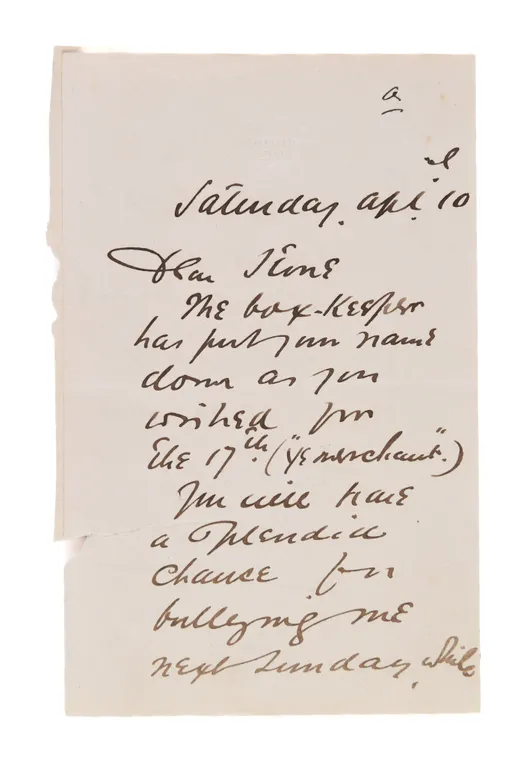 a
Saturday. Apl. 10
Dear Stone
The box-Keeper
has put your name
down as you
wished for
the 17th. ("Ye merchant".)
You will have
a splendid
chance for
bullying me
next Sunday. while